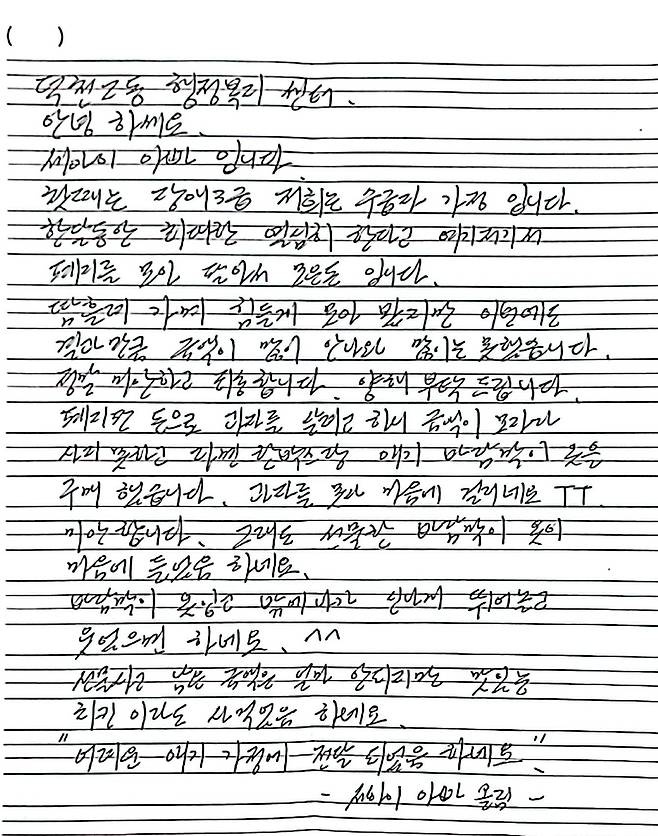 ( )
덕천2동 행정복지 센터.
안녕 하세요.
세아이 아빠 입니다.
첫째는 장애3급 저희는 수급자 가정 입니다.
한달동안 최대한 열심히 한다고 여기저기서
폐지를 모아 팔아서 모은돈 입니다.
땀흘리 가며 힘들게 모아 봤지만 이번에도
생각만큼 금액이 많이 안나와 많이는 못했습니다.
정말 미안하고 죄송합니다. 양해 부탁드립니다.
폐지판 돈으로 과자를 살려고 하니 금액이 모자라
사지 못하고 라면 한박스랑 애기 바람막이 옷을
구매 했습니다. 과자를 못사 마음에 걸리네요 ㅠㅠ.
미안합니다. 그래도 선물한 바람막이 옷이
마음에 들었음 하네요.
바람막이 옷입고 밖에나가 신나게 뛰어놀고
웃었으면 하네요. ^^
선물사고 남은 금액은 얼마 안되지만 맛있는
치킨 이라도 사먹었음 하네요.
"어려운 애기 가정에 전달 되었음 하네요"
- 세아이 아빠 올림 -